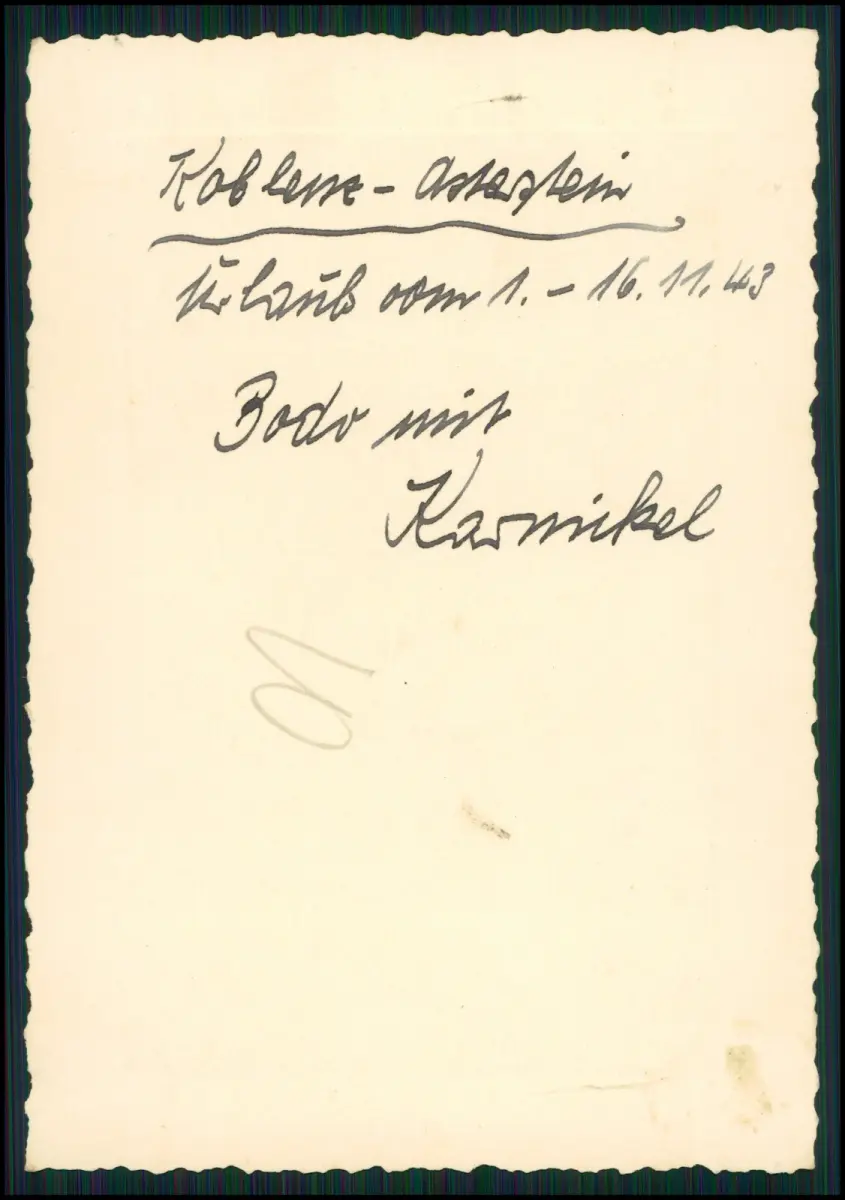 Koblenz - Asterstein
Urlaub vom 1. - 16. 11. 43
Bodo mit
Karnickel